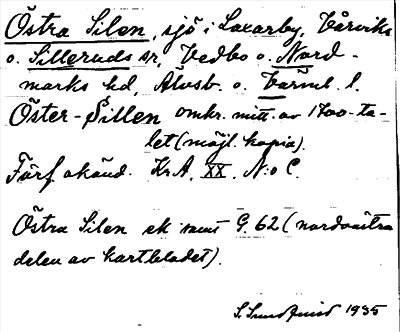 Östra Silen, sjö i Laxarby, Vårviks
o. Silleruds sr, Vedbo o. Nord-
marks hd, Älvsb. o. Värml. l.
Öster-Sillen omkr. mitt. av 1700-ta-
let (möjl. kopia).
Förf. okänd. Kr.A. XX. N:o C.
Östra Silen ek samt G. 62 (nordvästra
delen av kartbladet).
S. Sundquist 1935